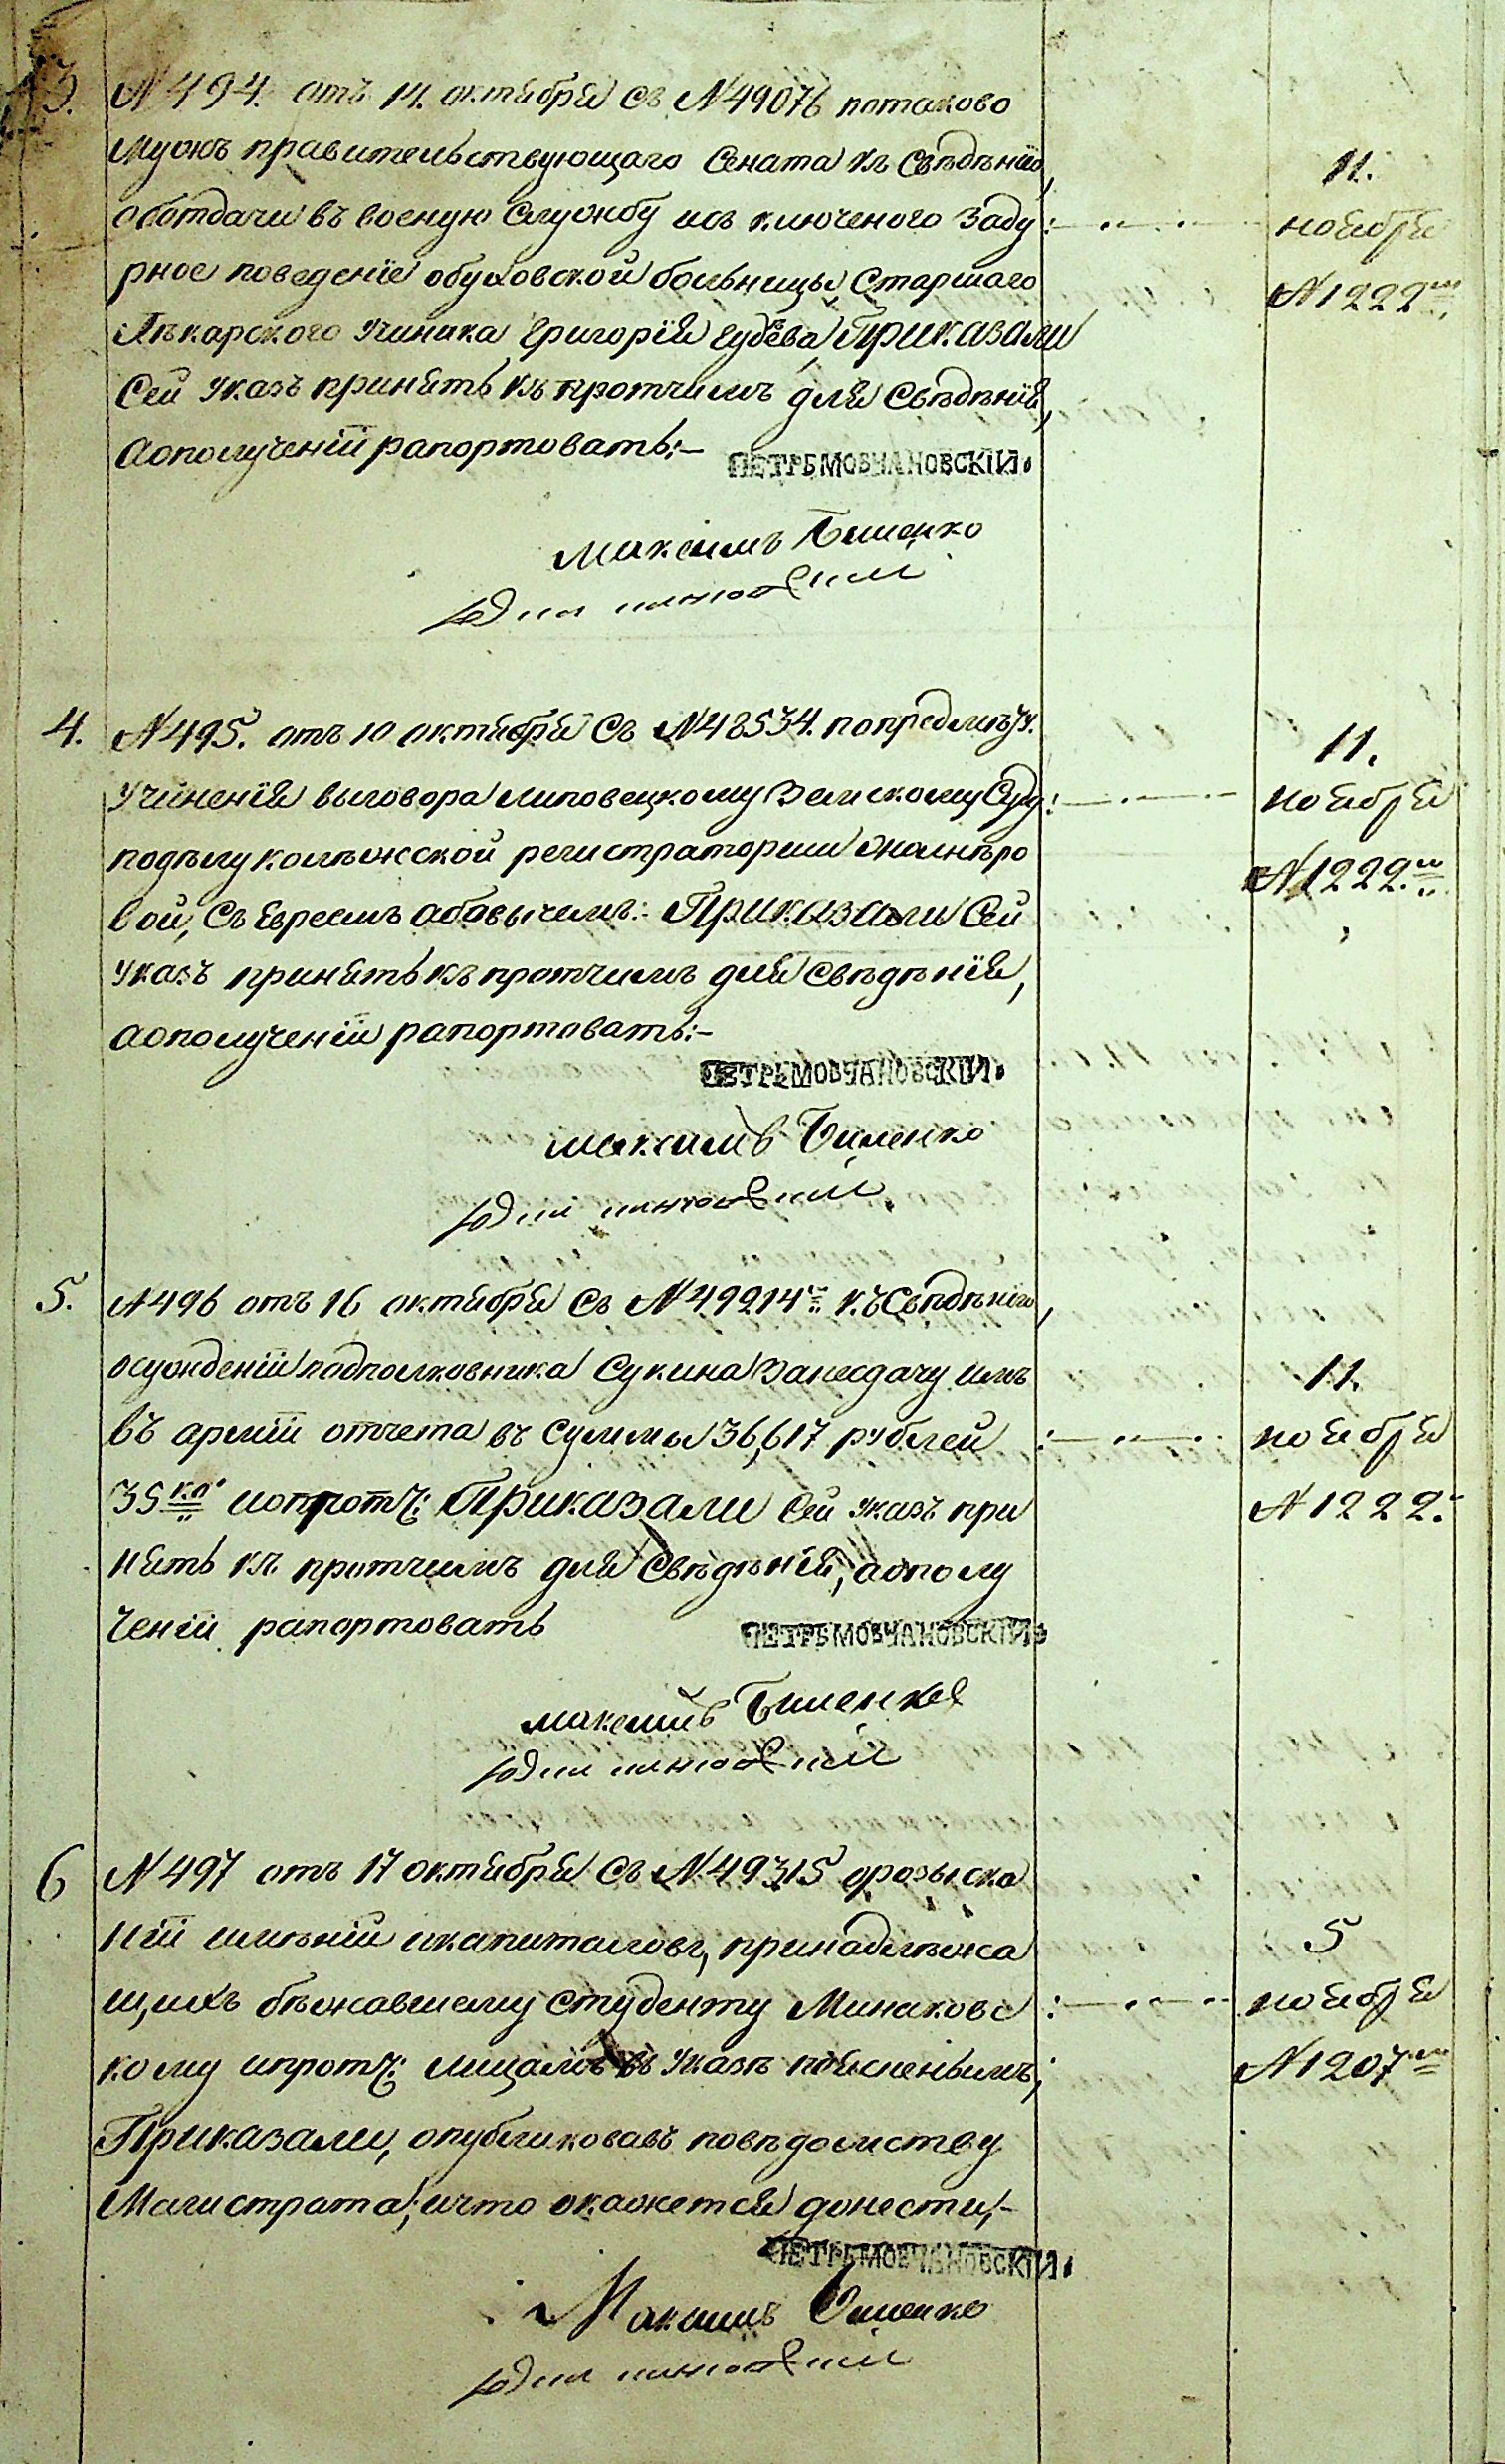 3.
N 494. отъ 14. октября съ N 49076 потаково
муожъ правительствующаго Сената къ Свѣдѣнію,
оботдачи въ военую службу исъ ключеного Заду
рное поведенїе обуховской больницы Старшаго
Лѣкарского Ученика Григорїя Приказали
Сей Указъ принять къ протчимъ для Свѣдѣнїя,
аополученїи рапортовать:-
ПЕТРЪ МОВЧАНОВСКІЙ.
Максимъ Биленко
11.
ноября
N 1222
4.
N 495. отъ 10 октября Съ N 48534. попредмѣту.
Учиненїя выговора липовецкому Земскому Суду
подѣлу колѣжской регистраторши
вой, Съ Евреемъ Приказали Сей
Указъ принять къ протчимъ для Свѣдѣнїя,
аополученїи рапортовать:-
ПЕТРЪ МОВЧАНОВСКІЙ.
Максимъ Биленко
11.
ноября
N 1222.
5.
N 496 отъ 16 октября съ N 49214 къ Свѣдѣнїю,
осужденїи подполковника Сукина Занездачу имъ
въ армїи отчета въ Суммы 36,617 рублей
35 ко. ипротч: Приказали Сей Указъ при
нять къ протчимъ для Свѣдѣнїй, аополу
ченїи рапортовать
ПЕТРЪ МОВЧАНОВСКІЙ.
Максимъ Биленко
11.
ноября
N 1222.
6
N 497 отъ 17 октября съ N 49315 орозыска
нїи имѣнїи икапиталовъ, принадлѣжа
щихъ бѣжавшему студенту Минаковс
кому ипротч: лицамъ въ Указѣ поясненымъ,
Приказали, опубликовавъ повѣдомству
Магистрата, ичто окажется донести,-
ПЕТРЪ МОВЧАНОВСКІЙ.
Максимъ Биленко
5
ноября
N 1207